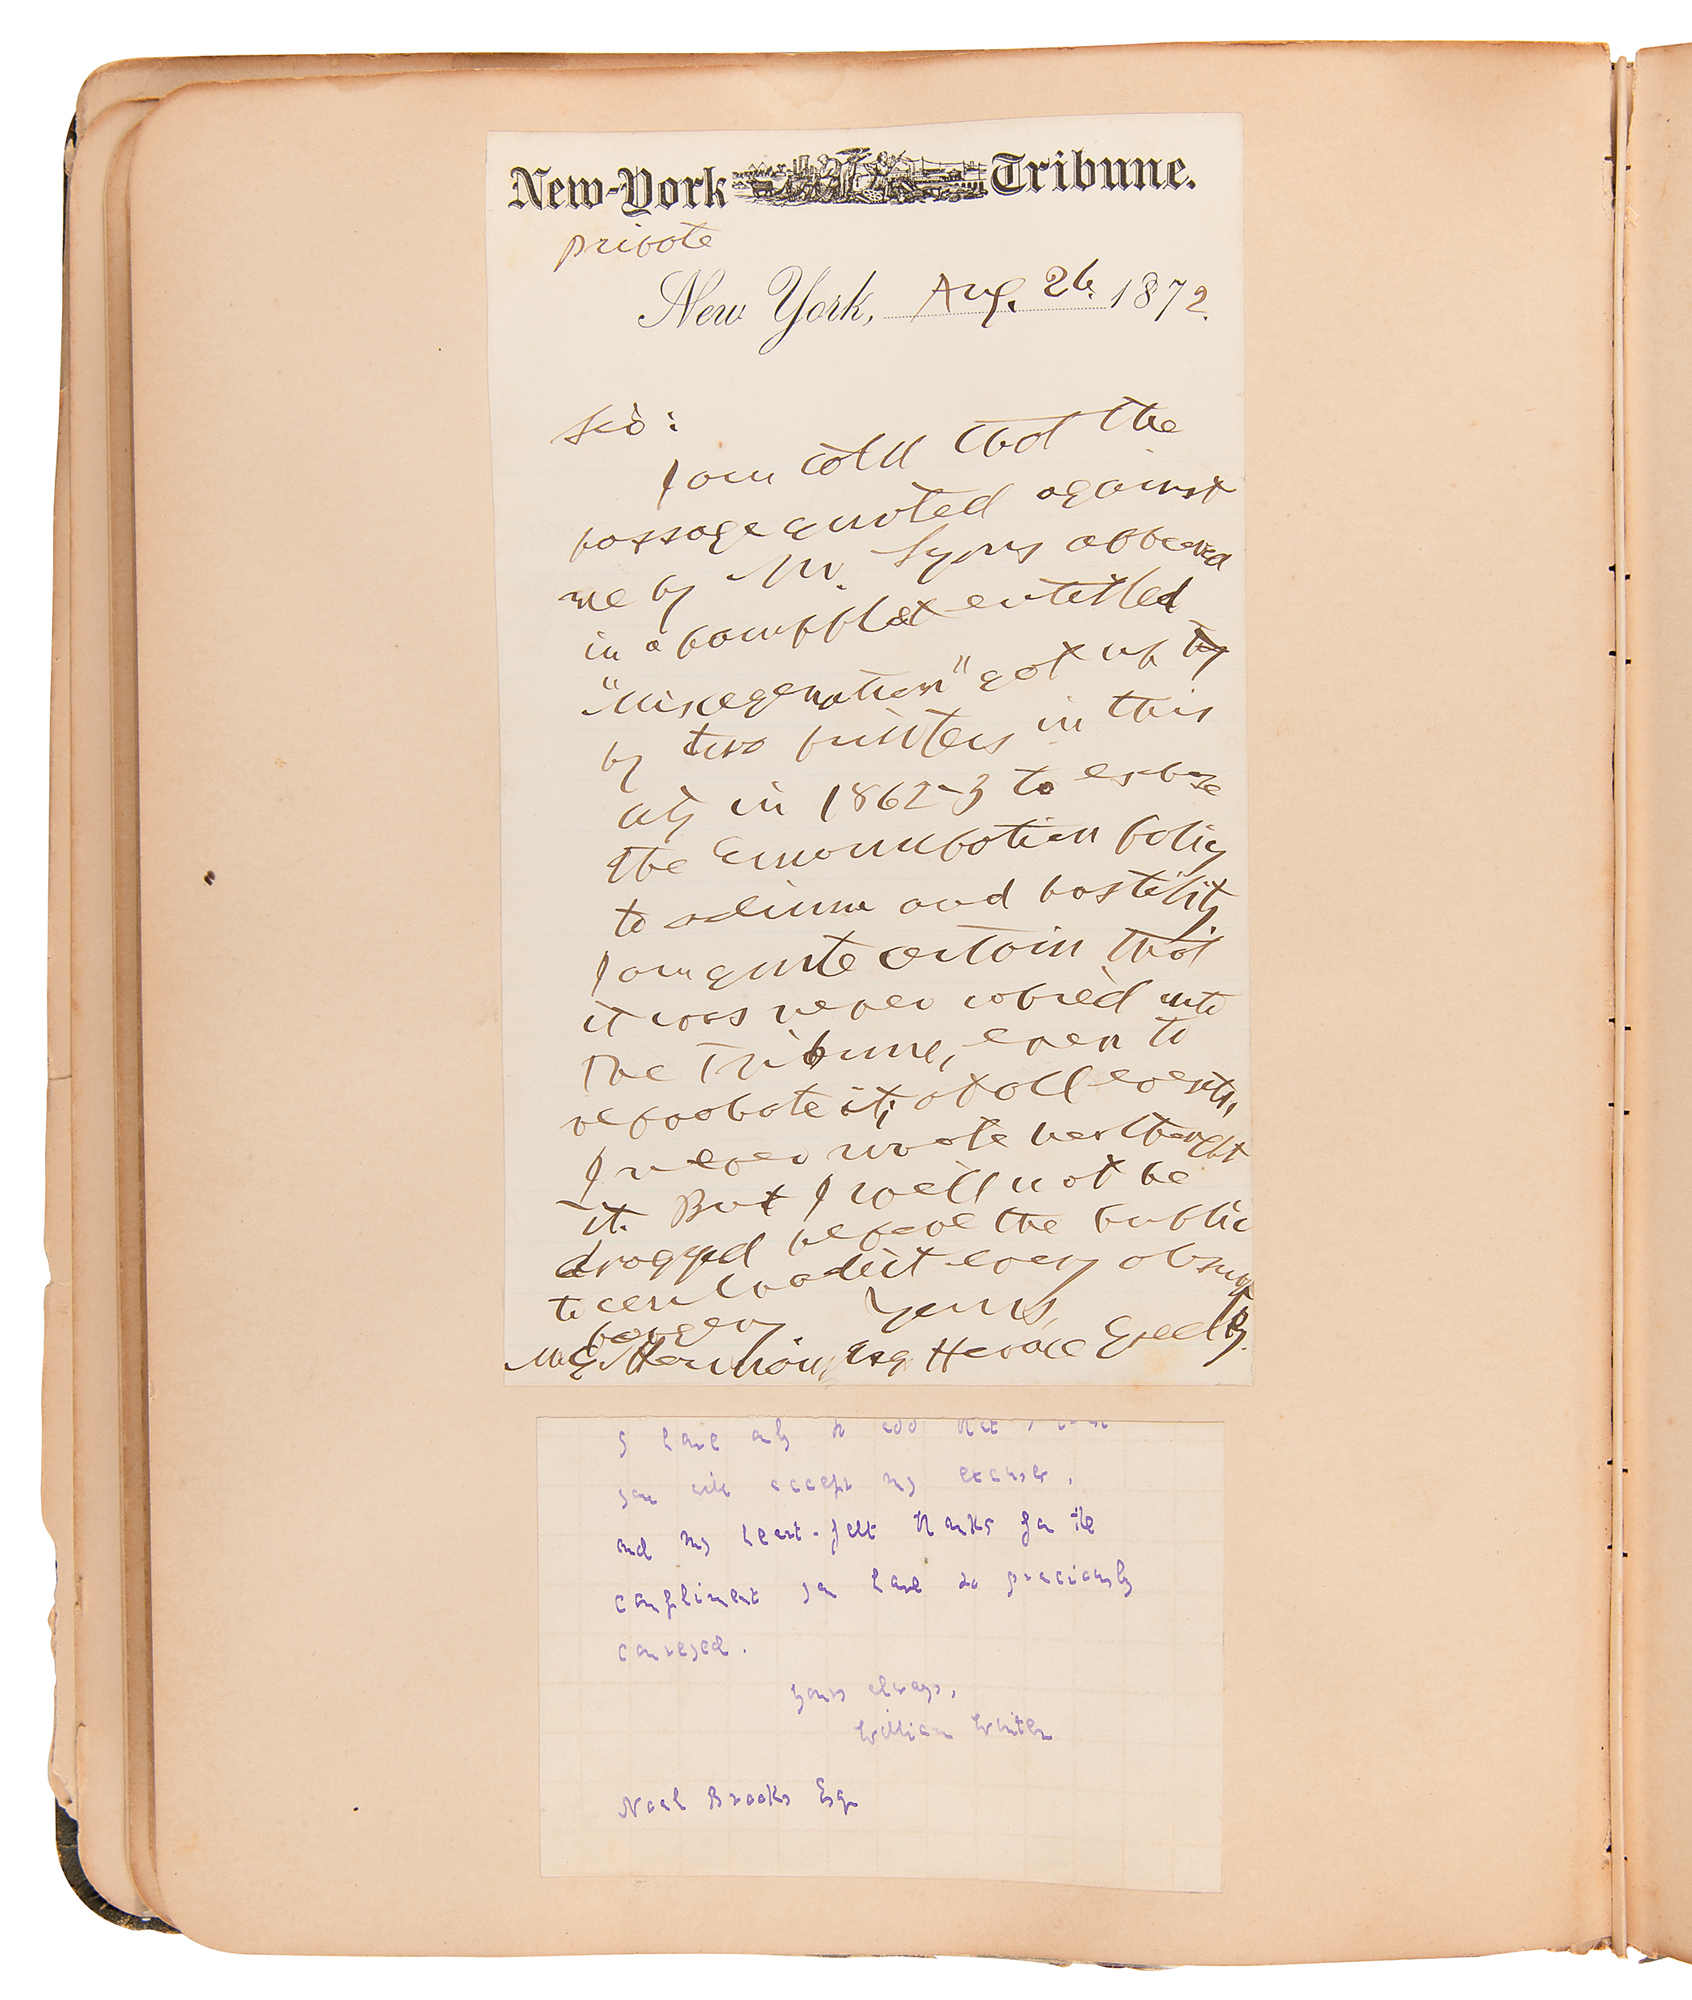 New-York Tribune.
private
New York, Aug. 26. 1872.
Sir:
I am told that the
passage quoted against
me by Mr. appeared
in a pamphlet entitled
"Miscegenation" got up by
by two printers in this
city in 1862-3 to expose
the Emancipation policy
to odium and hostility.
I am quite certain that
it was never copied into
the Tribune, even to
reprobate it; at all events,
I never wrote nor thought
it. But I will not be
dragged before the public
to contradict every
Yours,
Esq. Horace Greeley.
I have only to add that I
you will accept my excuses,
and my heart-felt thanks for the
compliment you have so graciously
conveyed.
Yours always,
William Winter
Noah Brooks Esq